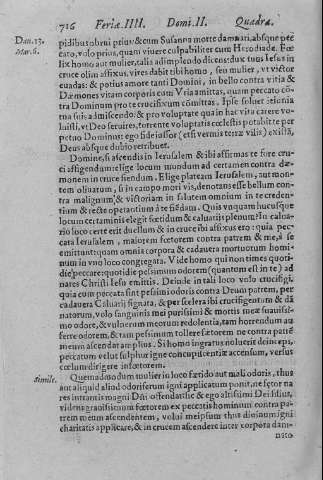 716 Feriæ IIII. Domi. II. Quadra.
Dan. 13.
Mar. 6.
pidibus obrui prius, & cum Susanna morte damnari, absque pec
cato, volo prius, quam vivere culpabiliter cum Herodiade. Fœ
lix homo aut mulier, talia adimplendo dicens: dux tuus Iesus in
cruce olim affixus, vires dabit tibi homo, seu mulier, ut victor
evadas: & potius amore tanti Domini, in bello contra vitia &
Dæmones vitam corporis tui amittas, quam peccato
tra Dominum pro te crucifixum committas. Ipse solvet
ma sui: admiscendo: & pro voluptate qua in hac vita carere vo
luisti, ut Deo servires, torrente voluptatis cœlestis potabit te per
petuo Dominus: ego fide iussor (etsi vermis terræ vilis) existã,
Deus absque dubio retribuet.
Domine, si ascendis in Ierusalem & ibi affirmas te fore cru
ci affigendum: elige locum mundum ad certamen contra dæ-
monem in cruce ineundum. Elige plateam Ierusalem, aut mon-
tem olivarum, si in campo mori vis, denotans esse bellum con-
tra malignum, & victoriam in salutem omnium in te creden-
tium & recte operantium à te fiendam. Quis unquam hucusque
locum certaminis elegit fœtidum & calvariis plenum? In calva-
rio loco certe erit duellum & in cruce ibi affixus ero: quia pec-
cata Ierusalem, maiorem fœtorem contra patrem & me, à se
emittunt: quam omnia corpora & cadavera mortuorum homi-
num in uno loco congregata. Vide homo qui non times quoti-
die peccare: quotidie pessimum odorem (quantum est in te) ad
nares Christi Iesu emittis. Deinde in tali loco volo crucifigi,
quia cum peccata sint pessimi odoris contra Deum patrem, per
cadavera Calvariæ signata, & per scelera ibi crucifigentum & dã
natorum, volo sanguinis mei purissimi & mortis meæ suavissi-
mo odore, & vulnerum meorum redolentia, tam horrendum au
ferre odorem, & tam pessimum tollere fœtorem ne contra patrẽ
meum ascendat amplius. Si homo ingratus nolueris deinceps,
peccatum velut sulphur igne concupiscentiæ accensum, versus
cœlum dirigere in fœtorem.
Simile.
Quemadmodum mulier in loco fœtido aut mali odoris, thus
aut aliquid aliud odoriferum igni applicatum ponit, ne fœtor na
res intrantis magni Dñi offendat: sic & ego altissimi Dei filius,
videns gravissimum fœtorem ex peccatis hominum contra pa-
trem meum ascendentem, volui meipsum thus divinum igni
charitatis applicare, & in crucem ascendere inter corpora dam-
nato